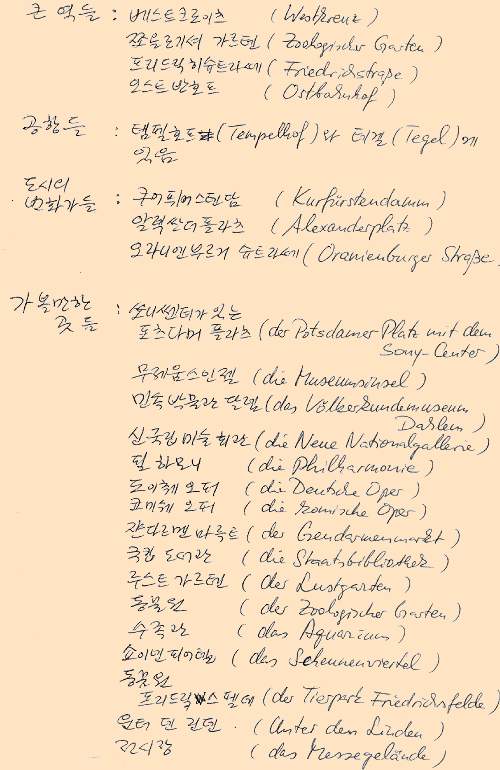 큰 역들 : 베스트크로이츠 (Westkreuz)
쪼오로기셔 가르텐 (Zoologischer Garten)
프리드릭히슈트라쎄 (Friedrichstraße)
오스트반호프 (Ostbahnhof)
공항들 : 템펠호프 (Tempelhof)와 테겔 (Tegel)에
있음
도시의
번화가들 : 쿠어퓌어스텐담 (Kurfürstendamm)
알렉싼더플라츠 (Alexanderplatz)
오라니엔부르거 슈트라쎄 (Oranienburger Straße
가볼만한
곳들 : 쏘니쎈터가 있는
포츠다머 플라츠 (der Potsdamer Platz mit dem
Sony-Center)
무제움스인젤 (die Museumsinsel)
민속 박물관 달렘 (das Völkerkundemuseum
Dahlem)
신국립 미술회관 (die Neue Nationalgallerie)
필하모니 (die Philharmonie)
도이췌 오퍼 (die Deutsche Oper)
코미쉐 오퍼 (die komische Oper)
쟌다르멘 마르크트 (der Gendarmenmarkt)
국립 도서관 (die Staatsbibliothek)
루스트 가르텐 (der Lustgarten)
동물원 (der Zoologischer Garten)
수족관 (das Aquarium)
쇼이넨피어텔 (das Scheunenviertel)
동물원
프리드릭스펠데 (der Tierpark Friedrichsfelde)
운터 덴 린덴 (Unter den Linden)
전시장 (das Messegelände)